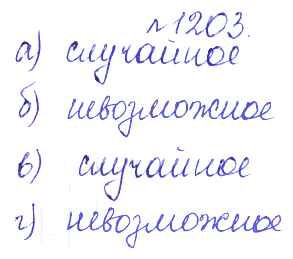 №1203.
а) случайное
б) невозможное
в) случайное
г) невозможное